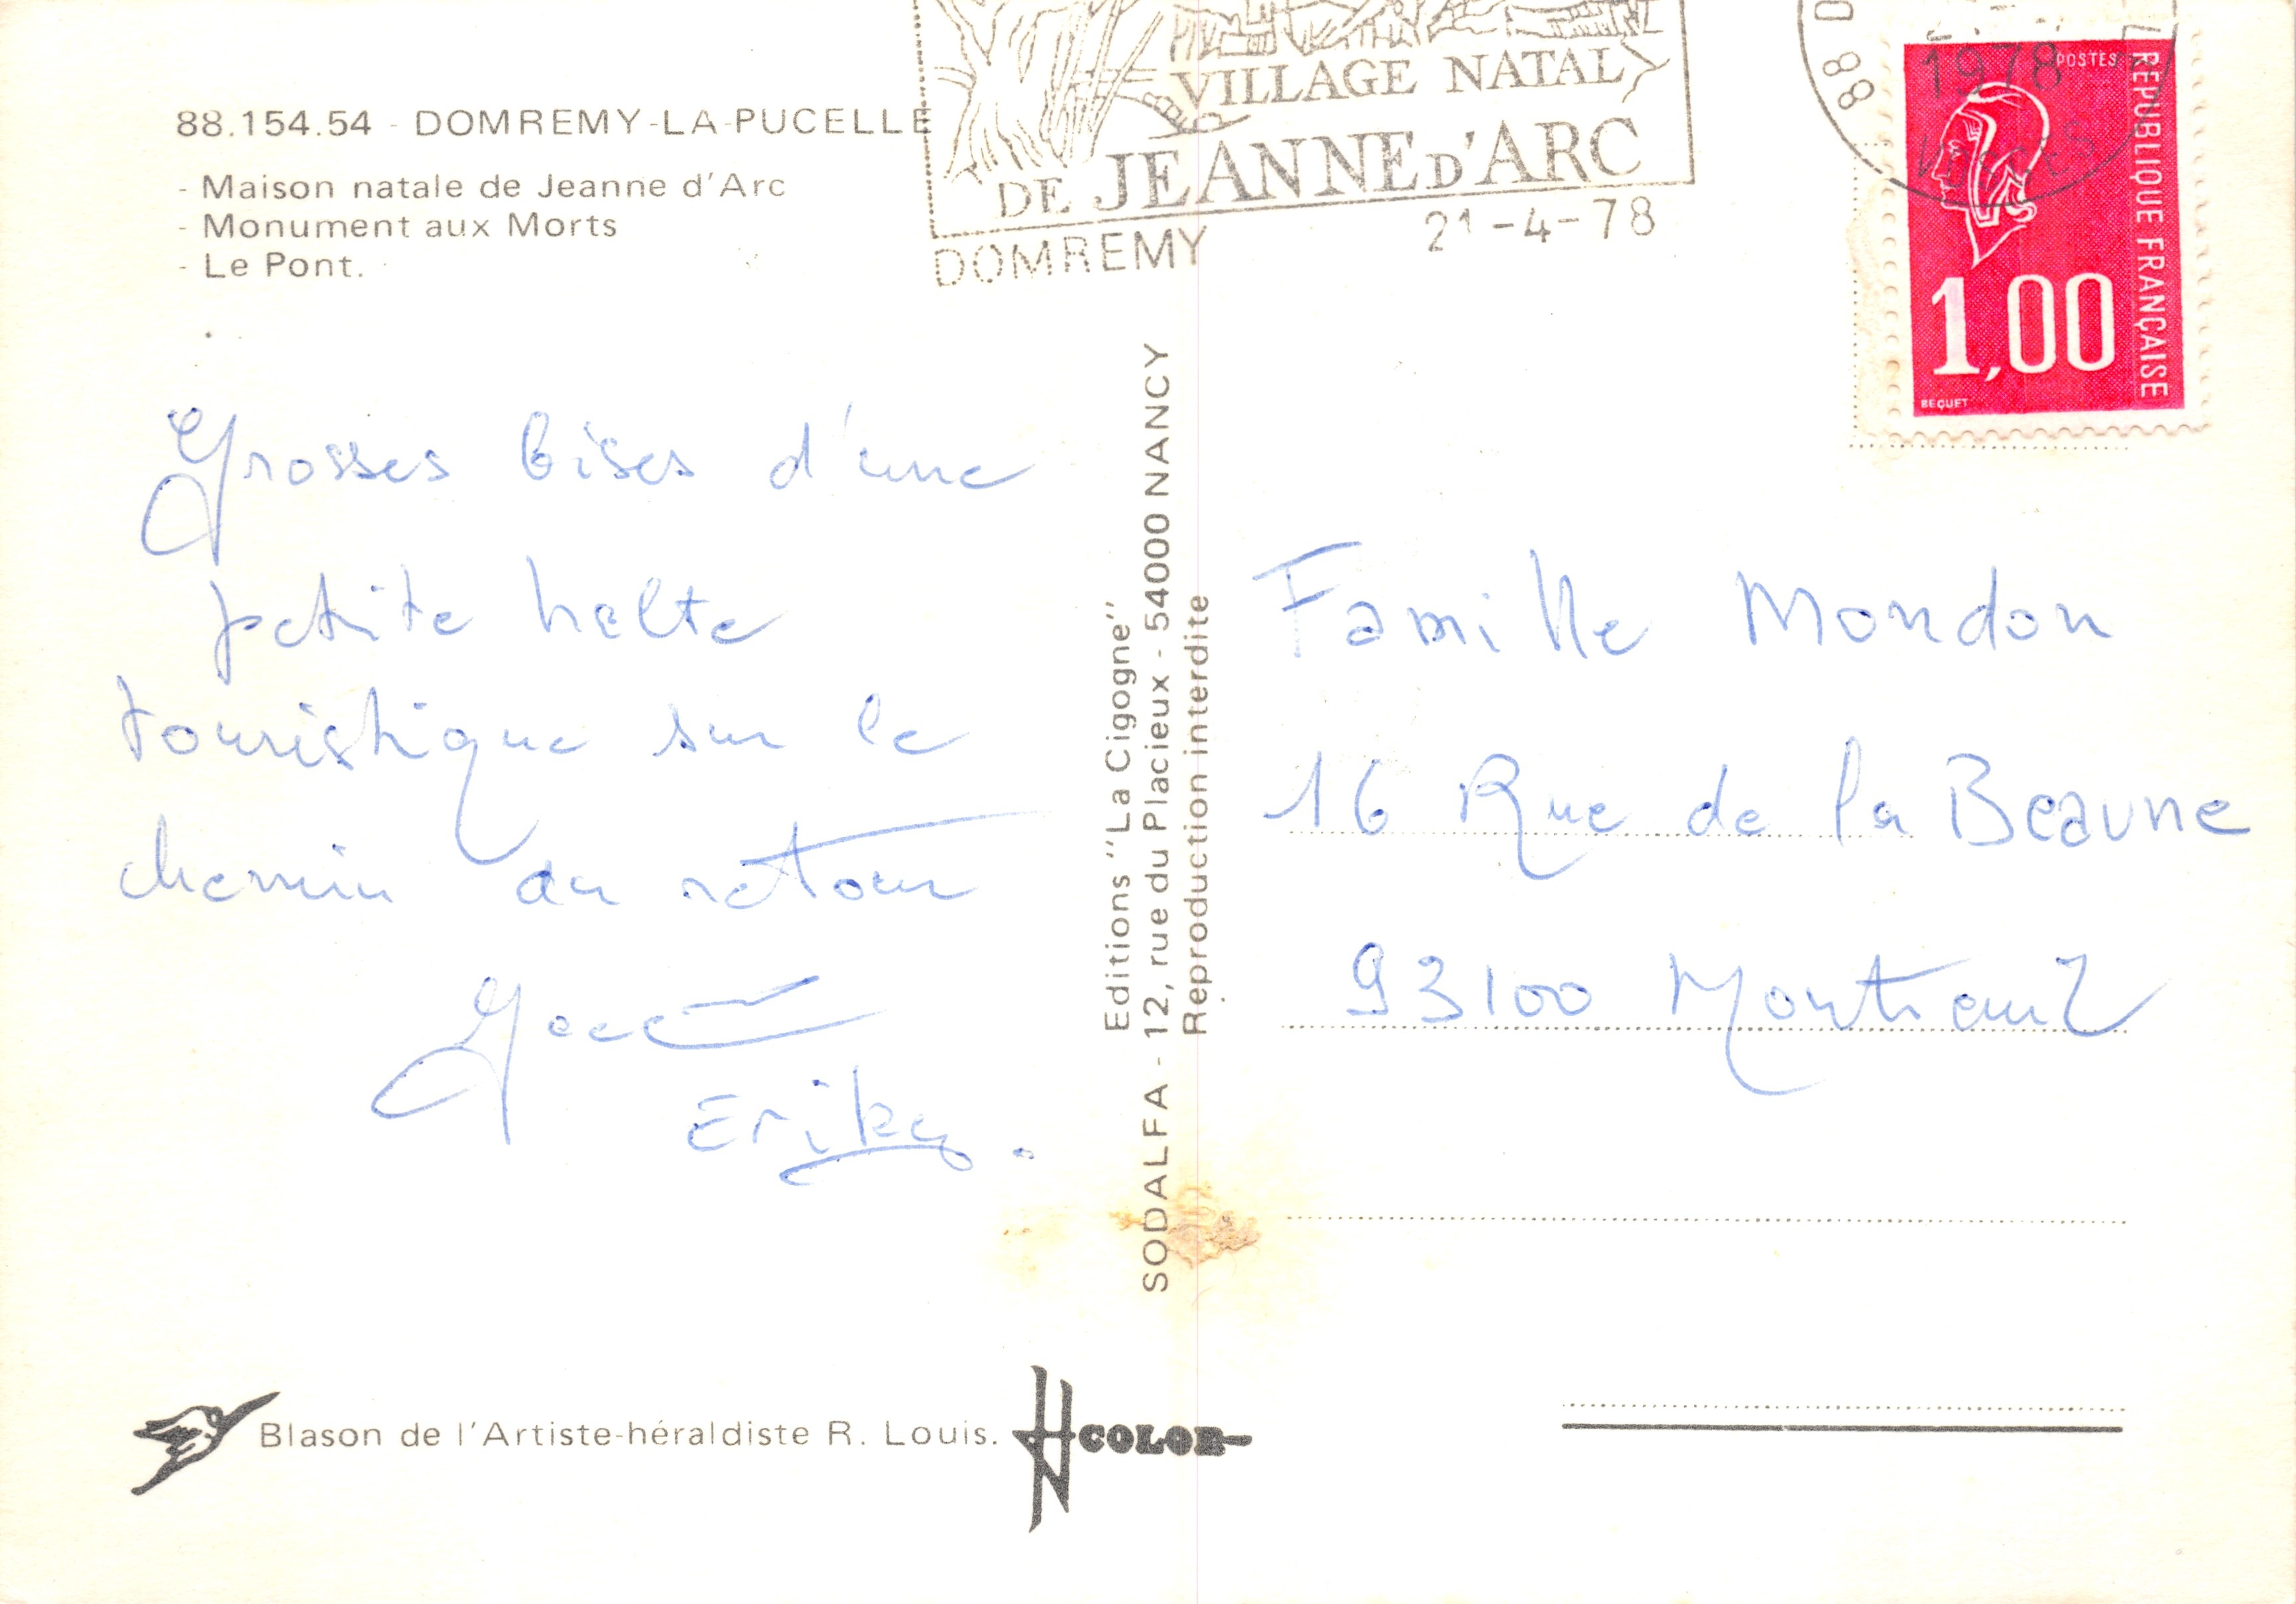 88.154.54 - DOMREMY-LA-PUCELLE
- Maison natale de Jeanne d'Arc
- Monument aux Morts
- Le Pont.
VILLAGE NATAL
DE JEANNE D'ARC
DOMREMY 21-4-78
88 D
1978
VOSGES
POSTES
REPUBLIQUE FRANÇAISE
1,00
BEQUET
Grosses bises d'une
petite halte
touristique sur le
chemin du retour
Erika.
Editions "La Cigogne"
SODALFA - 12, rue du Placieux - 54000 NANCY
Reproduction interdite
Famille Mondon
16 Rue de la Beaune
93100 Montreuil
Blason de l'Artiste-héraldiste R. Louis.
COLOR